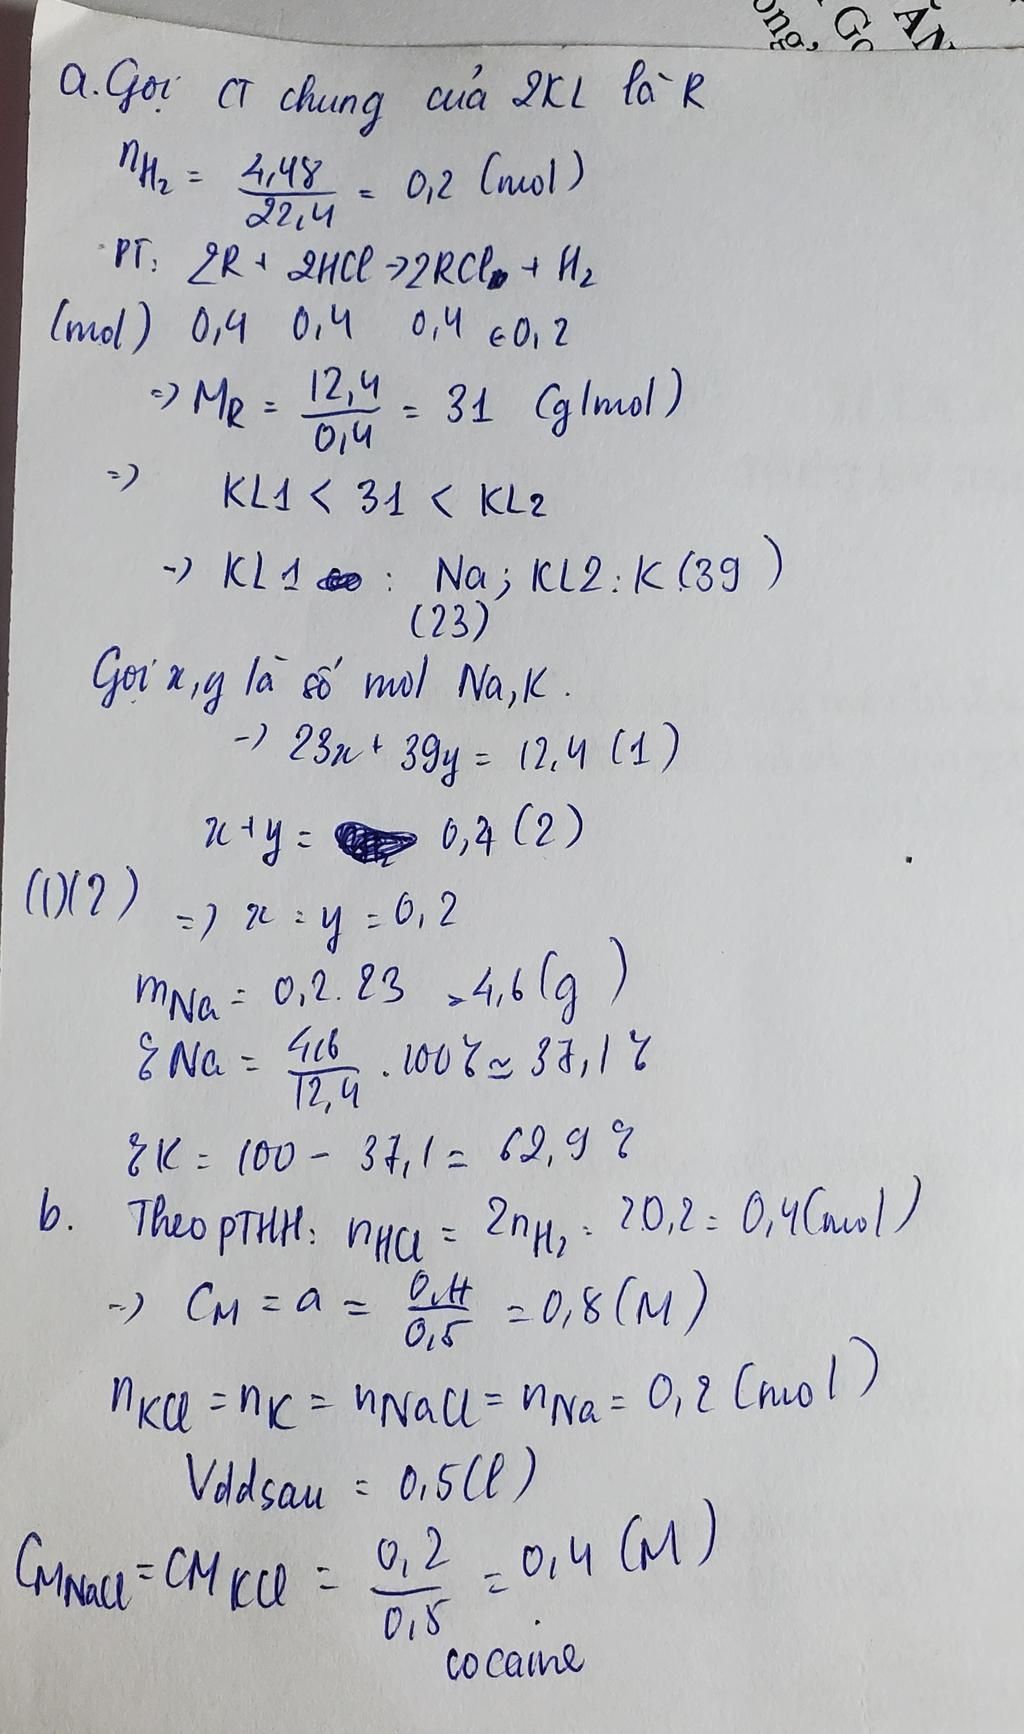 ong,
Gọ
ĂN
a. Gọi CT chung của 2KL là R
nH₂ = 4,48/22,4 = 0,2 (mol)
PT: 2R + 2HCl → 2RCl + H₂
(mol) 0,4 0,4 0,4 ← 0,2
=> MR = 12,4/0,4 = 31 (g/mol)
=> KL1 < 31 < KL2
-> KL1 : Na; KL2: K (39)
(23)
Gọi x, y là số mol Na, K.
-> 23x + 39y = 12,4 (1)
x + y = 0,4 (2)
(1)(2) => x = y = 0,2
mNa = 0,2.23 = 4,6 (g)
%Na = 4,6/12,4 . 100% ≃ 37,1%
%K = 100 - 37,1 = 62,9%
b. Theo PTHH: nHCl = 2nH₂ = 2 0,2 = 0,4 (mol)
-> CM = a = 0,4/0,5 = 0,8 (M)
nKCl = nK = nNaCl = nNa = 0,2 (mol)
Vddsau = 0,5 (l)
CMNaCl = CMKCl = 0,2/0,5 = 0,4 (M)
cocaine